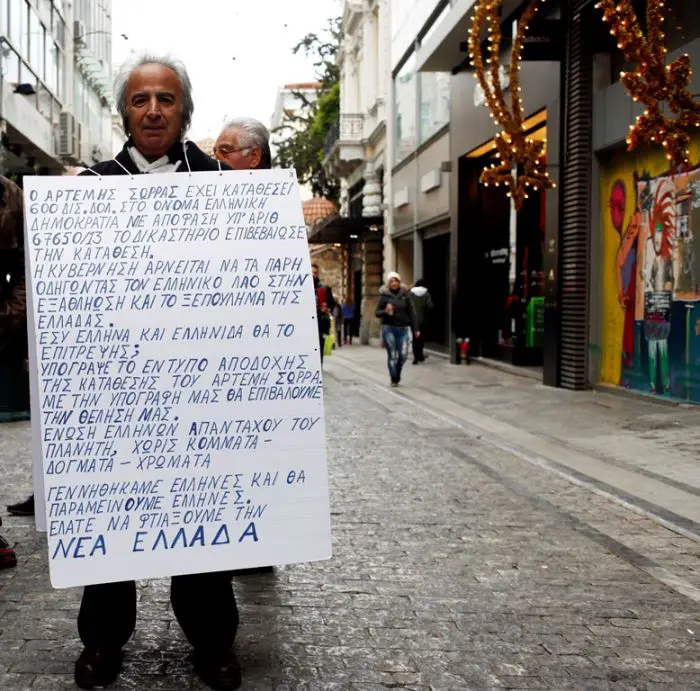 Ο ΑΡΤΕΜΗΣ ΣΩΡΡΑΣ ΕΧΕΙ ΚΑΤΑΘΕΣΕΙ
600 ΔΙΣ. ΔΟΛ. ΣΤΟ ΟΝΟΜΑ ΕΛΛΗΝΙΚΗ
ΔΗΜΟΚΡΑΤΙΑ ΜΕ ΑΠΟΦΑΣΗ ΥΠ' ΑΡΙΘ
67650/13 ΤΟ ΔΙΚΑΣΤΗΡΙΟ ΕΠΙΒΕΒΑΙΩΣΕ
ΤΗΝ ΚΑΤΑΘΕΣΗ.
Η ΚΥΒΕΡΝΗΣΗ ΑΡΝΕΙΤΑΙ ΝΑ ΤΑ ΠΑΡΗ
ΟΔΗΓΩΝΤΑΣ ΤΟΝ ΕΛΛΗΝΙΚΟ ΛΑΟ ΣΤΗΝ
ΕΞΑΘΛΗΩΣΗ ΚΑΙ ΤΟ ΞΕΠΟΥΛΗΜΑ ΤΗΣ
ΕΛΛΑΔΑΣ.
ΕΣΥ ΕΛΛΗΝΑ ΚΑΙ ΕΛΛΗΝΙΔΑ ΘΑ ΤΟ
ΕΠΙΤΡΕΨΗΣ;
ΥΠΟΓΡΑΨΕ ΤΟ ΕΝΤΥΠΟ ΑΠΟΔΟΧΗΣ
ΤΗΣ ΚΑΤΑΘΕΣΗΣ ΤΟΥ ΑΡΤΕΜΗ ΣΩΡΡΑ.
ΜΕ ΤΗΝ ΥΠΟΓΡΑΦΗ ΜΑΣ ΘΑ ΕΠΙΒΑΛΟΥΜΕ
ΤΗΝ ΘΕΛΗΣΗ ΜΑΣ.
ΕΝΩΣΗ ΕΛΛΗΝΩΝ ΑΠΑΝΤΑΧΟΥ ΤΟΥ
ΠΛΑΝΗΤΗ, ΧΩΡΙΣ ΚΟΜΜΑΤΑ –
ΔΟΓΜΑΤΑ – ΧΡΩΜΑΤΑ
ΓΕΝΝΗΘΗΚΑΜΕ ΕΛΛΗΝΕΣ ΚΑΙ ΘΑ
ΠΑΡΑΜΕΙΝΟΥΜΕ ΕΛΛΗΝΕΣ.
ΕΛΑΤΕ ΝΑ ΦΤΙΑΞΟΥΜΕ ΤΗΝ
ΝΕΑ ΕΛΛΑΔΑ